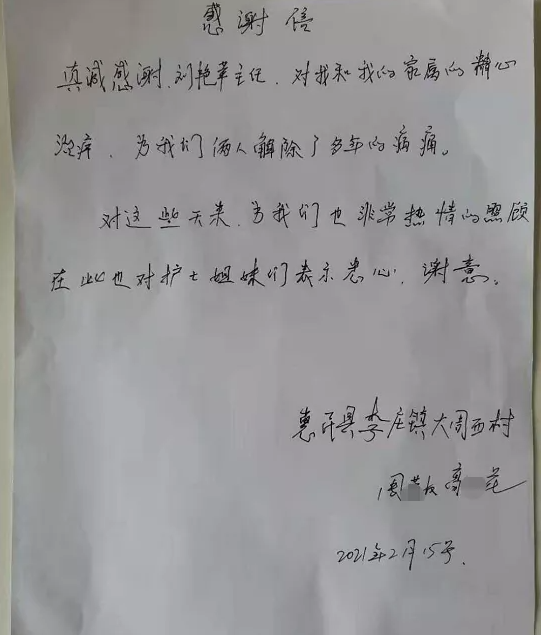 感谢信
真诚感谢.刘艳苹主任.对我和我的家属的精心
治疗.为我们俩人解除了多年的病痛。
对这些天来.为我们也非常热情的照顾
在此也对护士姐妹们表示忠心.谢意。
惠民县李庄镇大周西村
周 高 花
2021年2月15号.